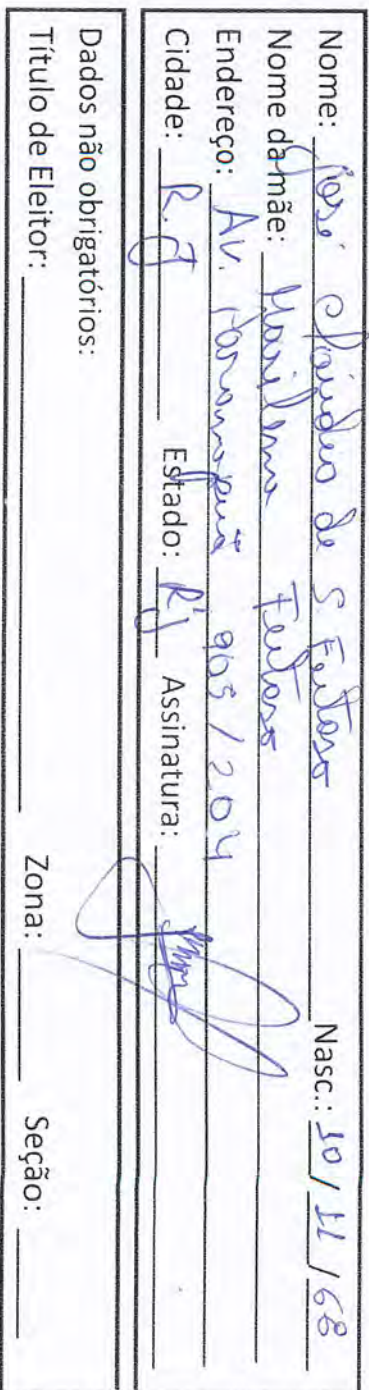 Nome: José Cláudio de S Feitosa Nasc.: 10/11/68
Nome da mãe: Marilena Feitosa
Endereço: Av. Paranapuã 905/204
Cidade: R.J Estado: RJ Assinatura:
Dados não obrigatórios:
Título de Eleitor: Zona: Seção: